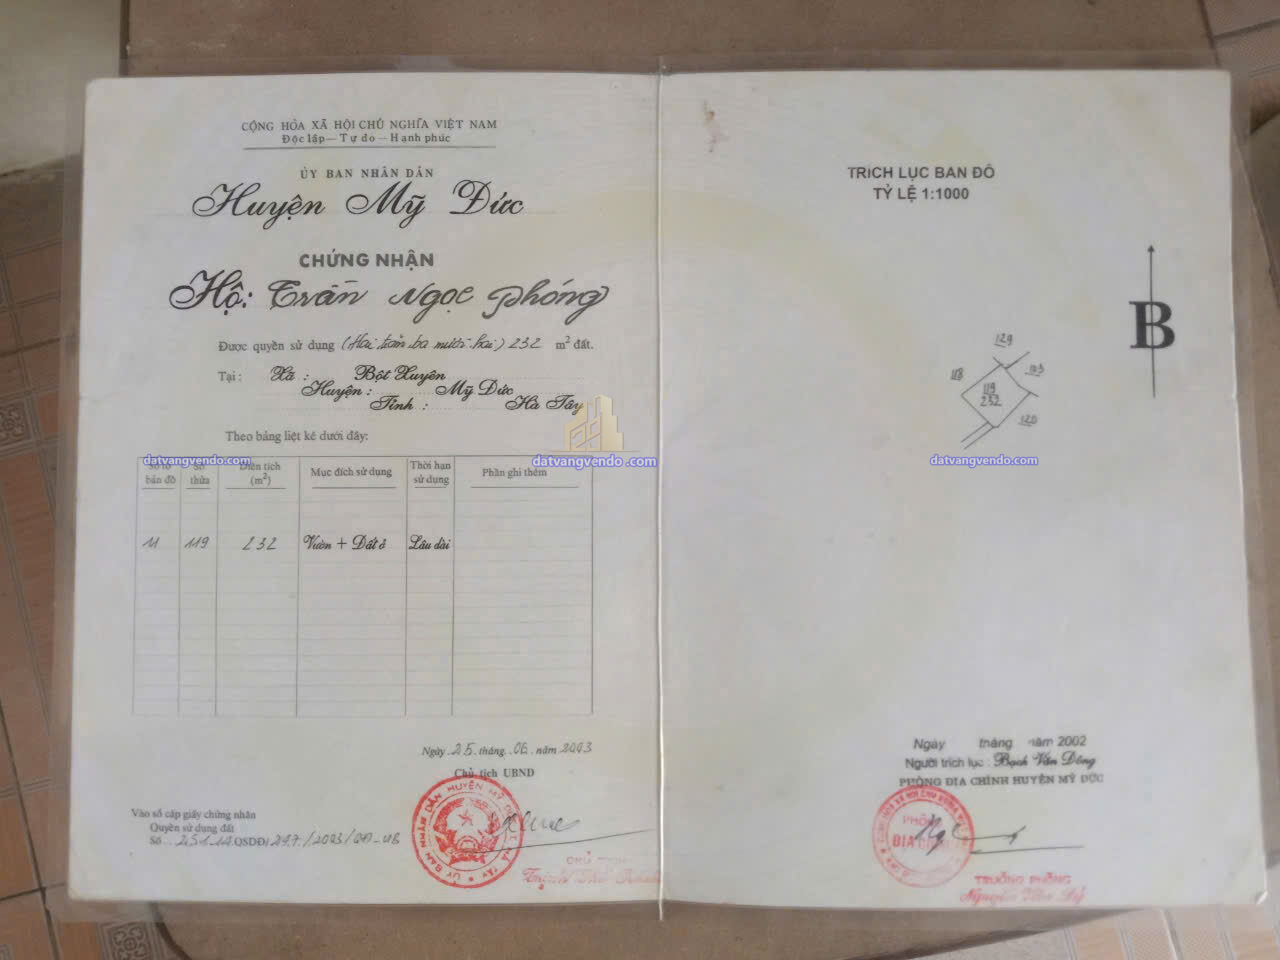 CỘNG HÒA XÃ HỘI CHỦ NGHĨA VIỆT NAM
Độc lập – Tự do – Hạnh phúc
ỦY BAN NHÂN DÂN
Huyện Mỹ Đức
CHỨNG NHẬN
Hộ: Trần Ngọc Phóng
Được quyền sử dụng (Hai trăm ba mươi hai) 232 m² đất.
Tại: Xã : Bột Xuyên
Huyện : Mỹ Đức
Tỉnh : Hà Tây
Theo bảng liệt kê dưới đây:
datvangvendo.com
datvangvendo.com
Số tờ bản đồ
Số thửa
Diện tích (m²)
Mục đích sử dụng
Thời hạn sử dụng
Phần ghi thêm
11 119 232 Vườn + Đất ở Lâu dài
Ngày 25 tháng 06 năm 2003
Chủ tịch UBND
Vào sổ cấp giấy chứng nhận
Quyền sử dụng đất
Số QSDĐ
CHỦ TỊCH
TRÍCH LỤC BẢN ĐỒ
TỶ LỆ 1:1000
B
129
118
103
119
232
120
datvangvendo.com
Ngày tháng năm 2002
Người trích lục : Bạch Văn Dông
PHÒNG ĐỊA CHÍNH HUYỆN MỸ ĐỨC
PHÒNG
ĐỊA CHÍNH
TRƯỞNG PHÒNG